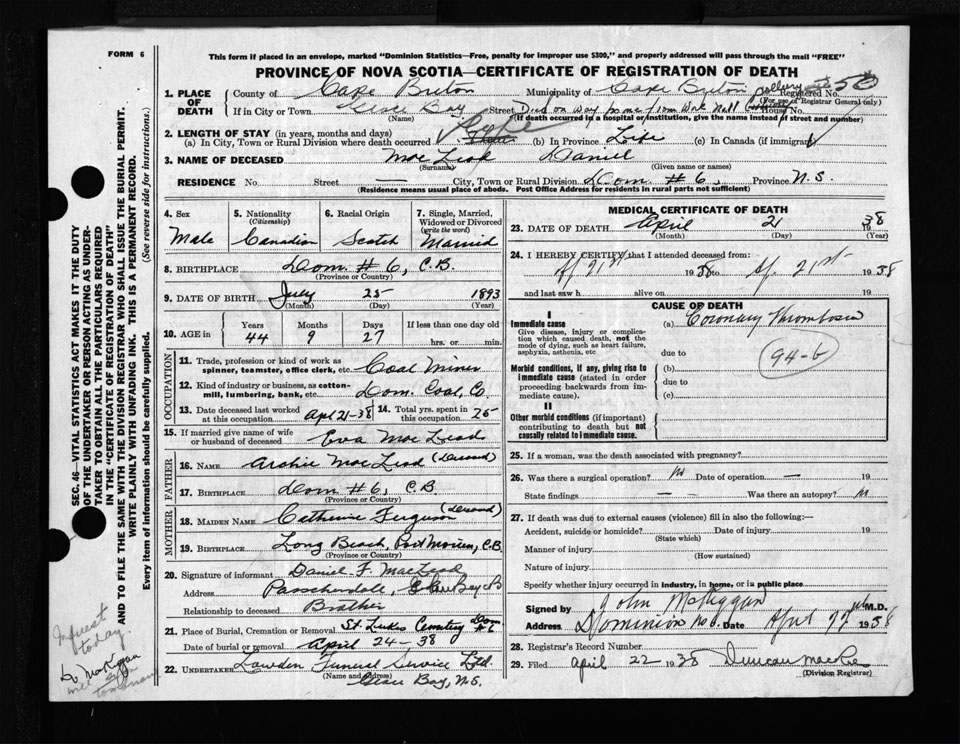 FORM 6
This form if placed in an envelope, marked "Dominion Statistics—Free, penalty for improper use $300," and properly addressed will pass through the mail "FREE"
PROVINCE OF NOVA SCOTIA—CERTIFICATE OF REGISTRATION OF DEATH
1. PLACE OF DEATH
County of Cape Breton Municipality of Cape Breton Registered No. 50
(For use of Registrar General only)
If in City or Town Glace Bay Street Died on way home from Work No 11 Colliery House No.
(Name) (If death occurred in a hospital or institution, give the name instead of street and number)
2. LENGTH OF STAY (in years, months and days)
(a) In City, Town or Rural Division where death occurred Life (b) In Province Life (c) In Canada (if immigrant)
3. NAME OF DECEASED Mac Leod Daniel
(Surname) (Given name or names)
RESIDENCE No. Street — City, Town or Rural Division Dom. # 6, Province N.S.
(Residence means usual place of abode. Post Office Address for residents in rural parts not sufficient)
4. Sex
Male
5. Nationality
(Citizenship)
Canadian
6. Racial Origin
Scotch
7. Single, Married, Widowed or Divorced
(write the word)
Married
8. BIRTHPLACE Dom. # 6, C.B.
(Province or Country)
9. DATE OF BIRTH July 25 1893
(Month) (Day) (Year)
10. AGE in
Years Months Days If less than one day old
44 9 27 hrs. or min.
OCCUPATION
11. Trade, profession or kind of work as
spinner, teamster, office clerk, etc. Coal Miner
12. Kind of industry or business, as cotton-
mill, lumbering, bank, etc. Dom. Coal, Co.
13. Date deceased last worked
at this occupation Apl 21-38 14. Total yrs. spent in
this occupation 25
15. If married give name of wife
or husband of deceased Eva Mac Leod
FATHER
16. NAME Archie Mac Leod (Deceased)
17. BIRTHPLACE Dom # 6, C.B.
(Province or Country)
MOTHER
18. MAIDEN NAME Catherine Ferguson (Deceased)
19. BIRTHPLACE Long Beach, Port Morien, C.B.
(Province or Country)
20. Signature of informant Daniel F. MacLeod
Address Passchendale, Glace Bay C B
Relationship to deceased Brother
21. Place of Burial, Cremation or Removal St. Lukes Cemetery Dom # 6
Date of burial or removal April 24 - 38
22. UNDERTAKER Lowden Funeral Service Ltd.
(Name and address)
Glace Bay, N.S.
MEDICAL CERTIFICATE OF DEATH
23. DATE OF DEATH April 21 1938
(Month) (Day) (Year)
24. I HEREBY CERTIFY that I attended deceased from:
Ap 21st 1938 to Ap. 21st 1938
and last saw h alive on 19
CAUSE OF DEATH
I
Immediate cause
Give disease, injury or complica-
tion which caused death, not the
mode of dying, such as heart failure,
asphyxia, asthenia, etc
(a) Coronary Thrombosis
94-b
due to
Morbid conditions, if any, giving rise to
immediate cause (stated in order
proceeding backwards from im-
mediate cause).
(b)
due to
(c)
II
Other morbid conditions (if important)
contributing to death but not
causally related to immediate cause.
25. If a woman, was the death associated with pregnancy?
26. Was there a surgical operation? No Date of operation — 19
State findings — Was there an autopsy? No
27. If death was due to external causes (violence) fill in also the following:—
Accident, suicide or homicide? Date of injury 19
(State which)
Manner of injury
(How sustained)
Nature of injury
Specify whether injury occurred in industry, in home, or in public place
Signed by John McKiggan M.D.
Address Dominion No 6. Date April 22nd 1938
28. Registrar's Record Number
29. Filed April 22 1938 Duncan MacRae
(Division Registrar)
SEC. 46—VITAL STATISTICS ACT MAKES IT THE DUTY
OF THE UNDERTAKER OR PERSON ACTING AS UNDER-
TAKER TO OBTAIN ALL THE PARTICULARS REQUIRED
IN THE "CERTIFICATE OF REGISTRATION OF DEATH"
AND TO FILE THE SAME WITH THE DIVISION REGISTRAR WHO SHALL ISSUE THE BURIAL PERMIT.
WRITE PLAINLY WITH UNFADING INK. THIS IS A PERMANENT RECORD.
Every item of information should be carefully supplied. (See reverse side for instructions.)
Inquest
today.
Dr McKiggan
will
tomorrow